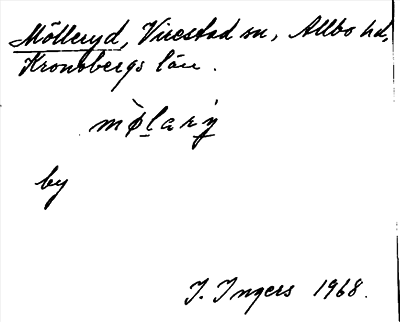 Mölleryd, Virestad sn, Allbo hd,
Kronobergs län.
mø̀larý
by
I. Ingers 1968.